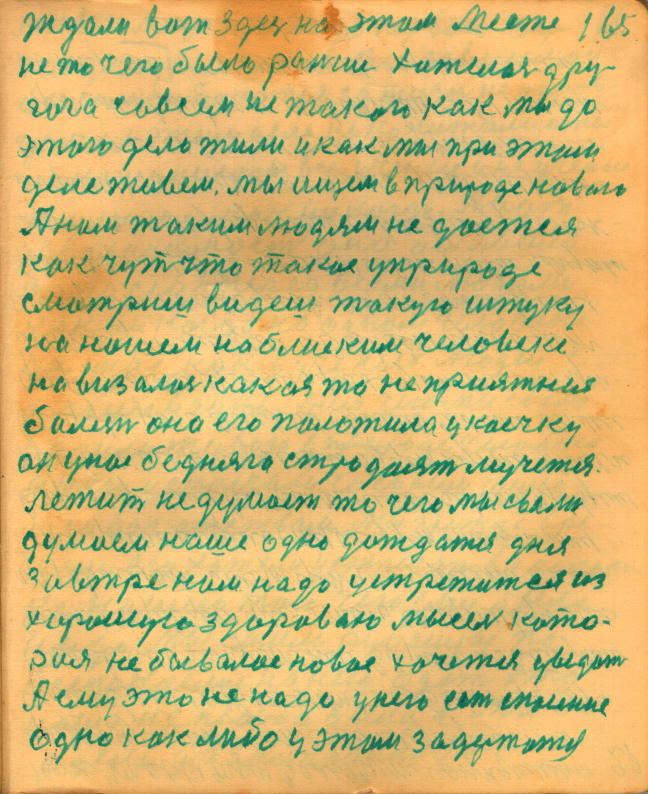 ждали вот здес на этом месте 165
не то чего было ранше хотелося дру-
гога совсем не такого как мы до
этого дела жили и как мы при этом
деле живем, мы ищем в природе нового
А нам таким людям не дается
как чут что такое у природе
смотриш видеш такую штуку
на нашем на близким человеке
на визалая какоя то не приятная
болезн она его положила у коечку
он у нас бедняга стродоят мучется.
лежит не думает то чего мы свами
думоем наше одно дождатся дня
завтре нам надо устретится из
хорошую здороваю мысля кото-
рая не бывалое новое хочется увидат
А ему это не надо у него ест мнение
одно как либо у этом задержатя